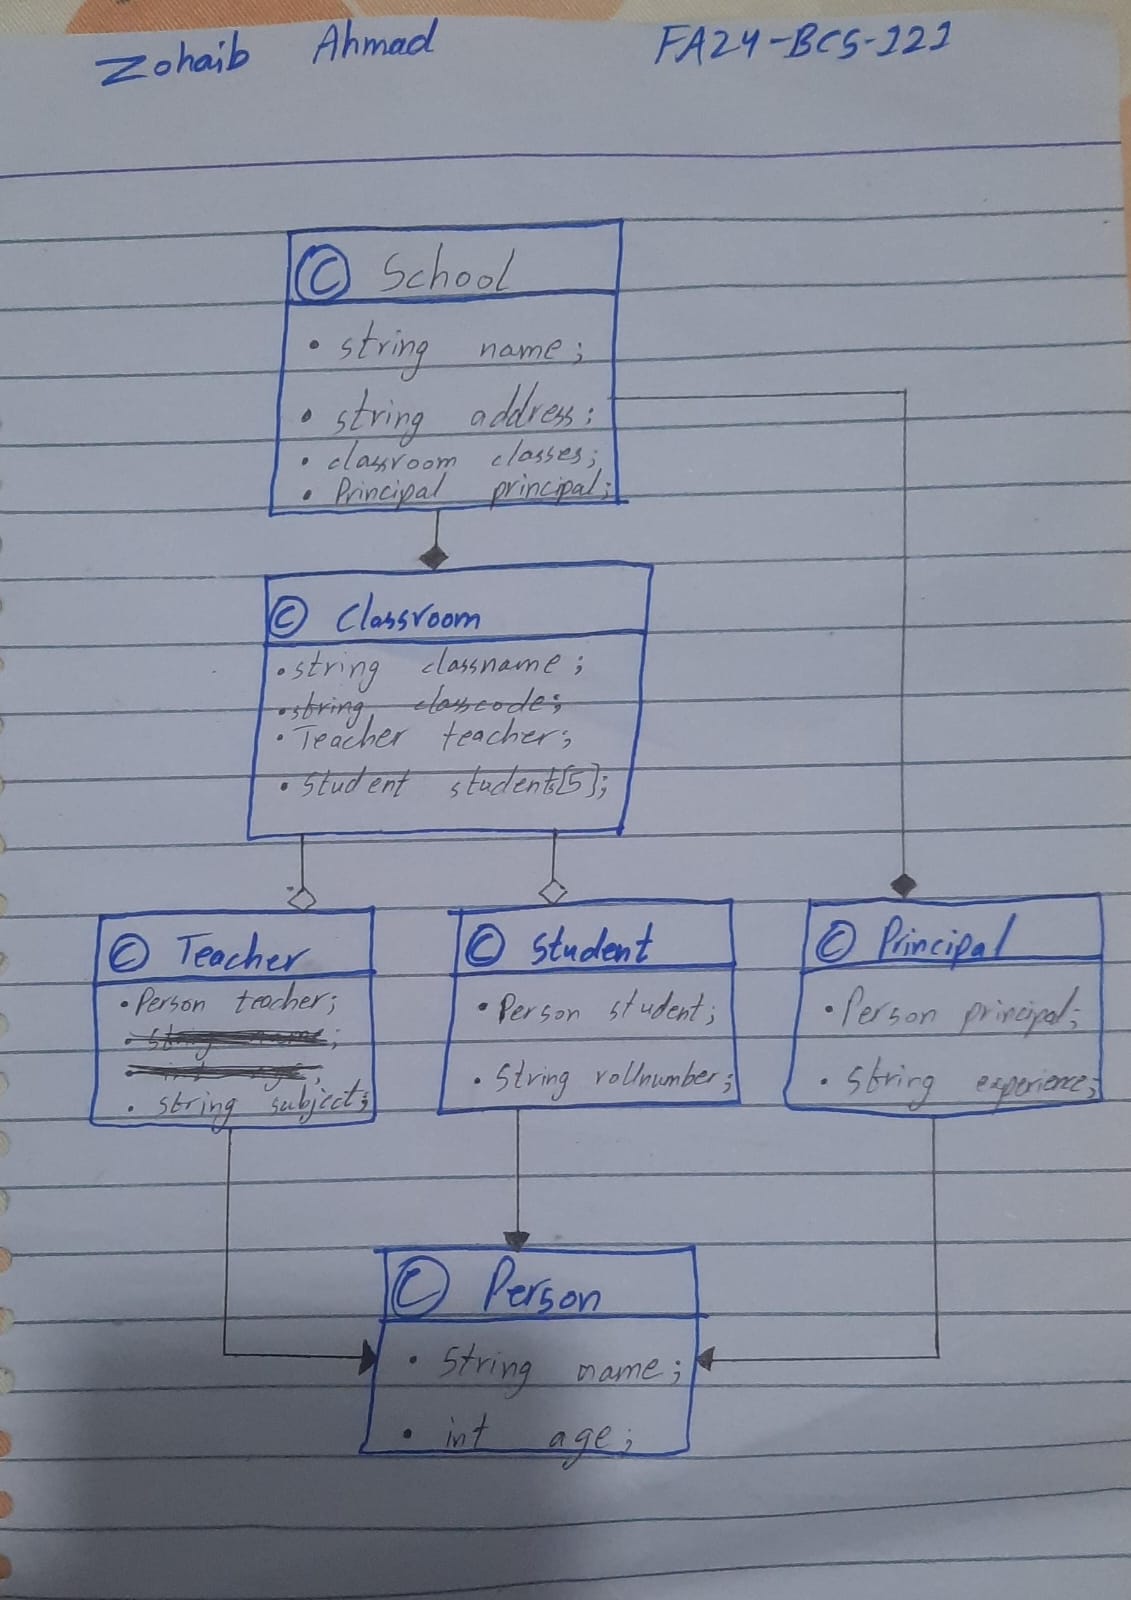 Zohaib Ahmad FA24-BCS-121
© School
• string name;
• string address;
• classroom classes;
• Principal principal;
© Classroom
• string classname;
• string classcode;
• Teacher teacher;
• Student students[5];
© Teacher
• Person teacher;
• string subject;
© Student
• Person student;
• String rollnumber;
© Principal
• Person principal;
• string experience;
© Person
• String name;
• int age;